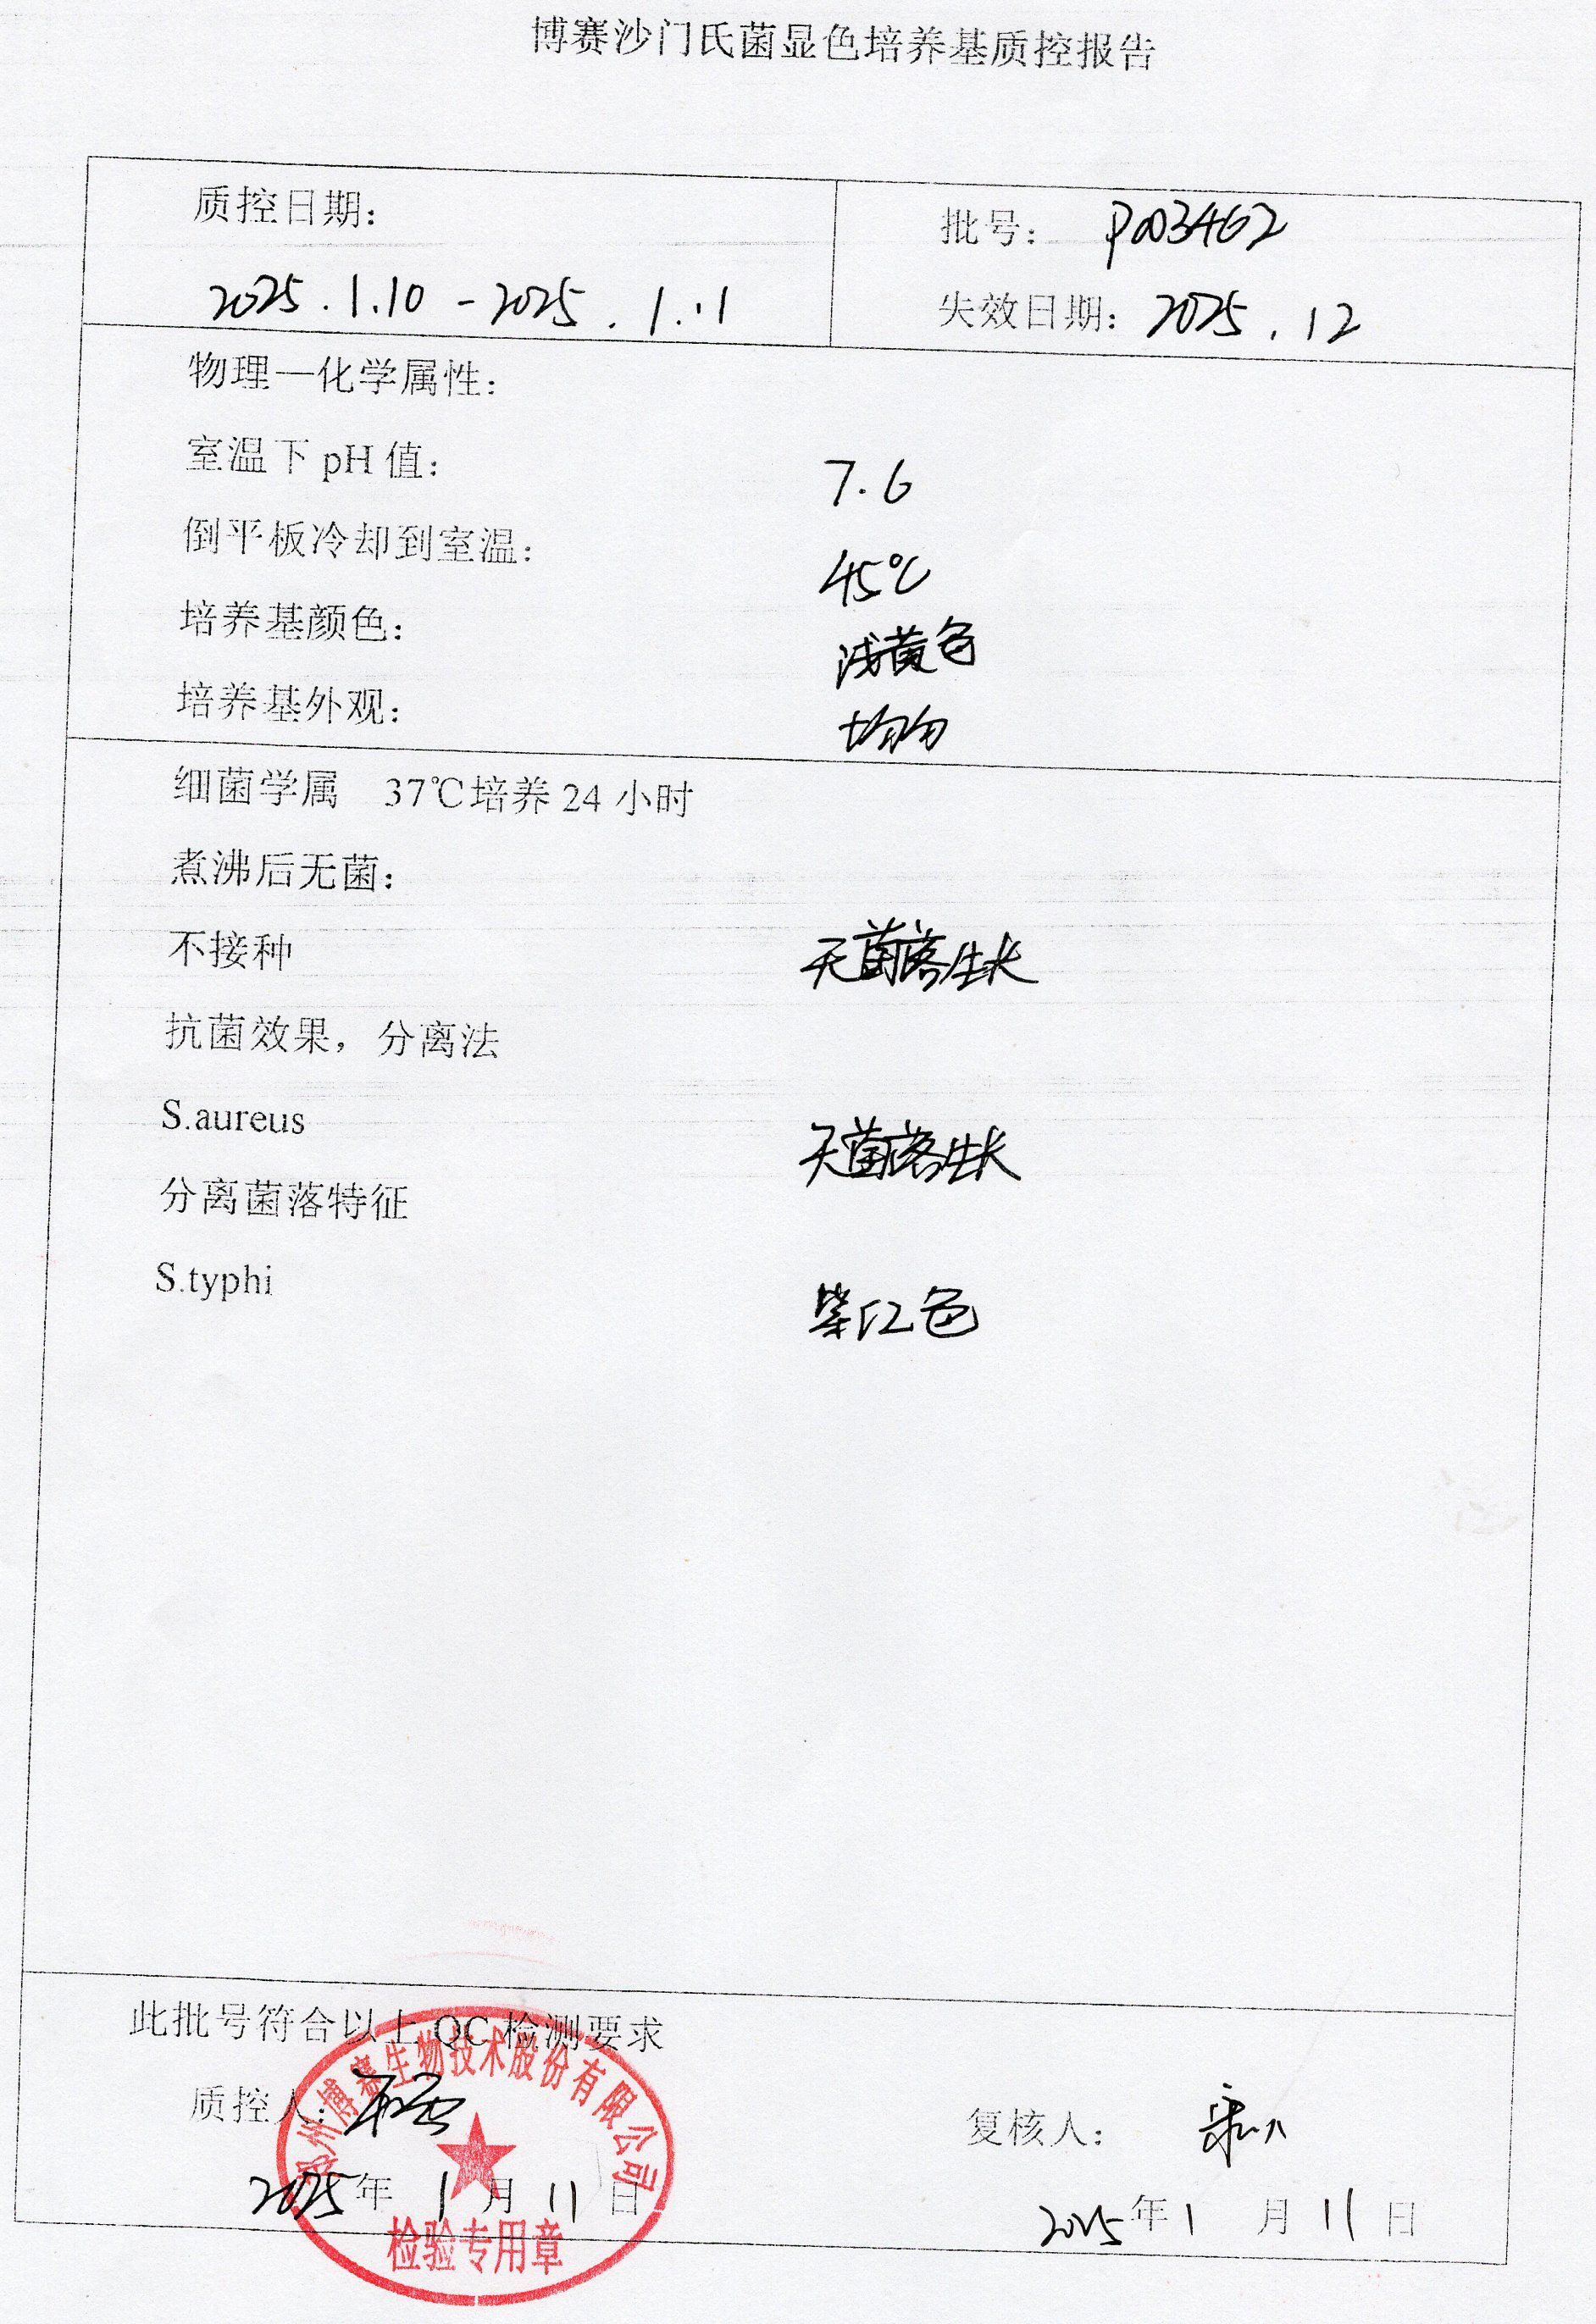 博赛沙门氏菌显色培养基质控报告
质控日期：
批号： P003462
2025.1.10-2025.1.11
失效日期： 2025.12
物理—化学属性：
室温下 pH 值： 7.6
倒平板冷却到室温： 45℃
培养基颜色： 浅黄色
培养基外观： 均匀
细菌学属 37℃培养 24 小时
煮沸后无菌：
不接种 无菌落生长
抗菌效果，分离法
S.aureus 无菌落生长
分离菌落特征
S.typhi 紫红色
此批号符合以上 QC 检测要求
郑州博赛生物技术股份有限公司
质控人：
复核人：
2025年 1 月 11 日
2025年 1 月 11 日
检验专用章